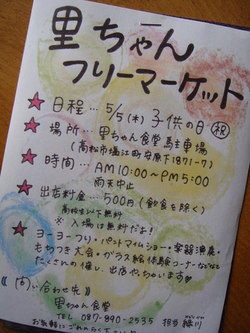 里ちゃん
フリーマーケット
★日程…5/5(木)子供の日㊗
★場所…里ちゃん食堂駐車場
(高松市塩江町安原下1871-7)
★時間…AM10:00〜PM5:00
雨天中止
★出店料金…500円(飲食を除く)
高校生以下無料
※入場は無料だよ!
★ヨーヨーつり・パントマイムショー・楽器演奏・
もちつき大会・ガラス絵体験コーナーなどなど
たくさんの催し、出店やちょいます
《問い合わせ先》
里ちゃん食堂
TEL 087-890-2535 担当 緑川
お気軽に